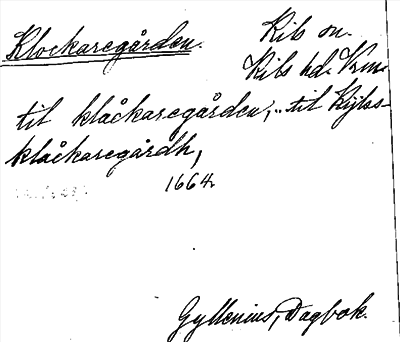 Klockaregården.
Kils sn.
Kils hd. Vrml.
til klåckaregården, .. til Kijlss-
klåckaregårdh,
1664.
Gyllenius, Dagbok.